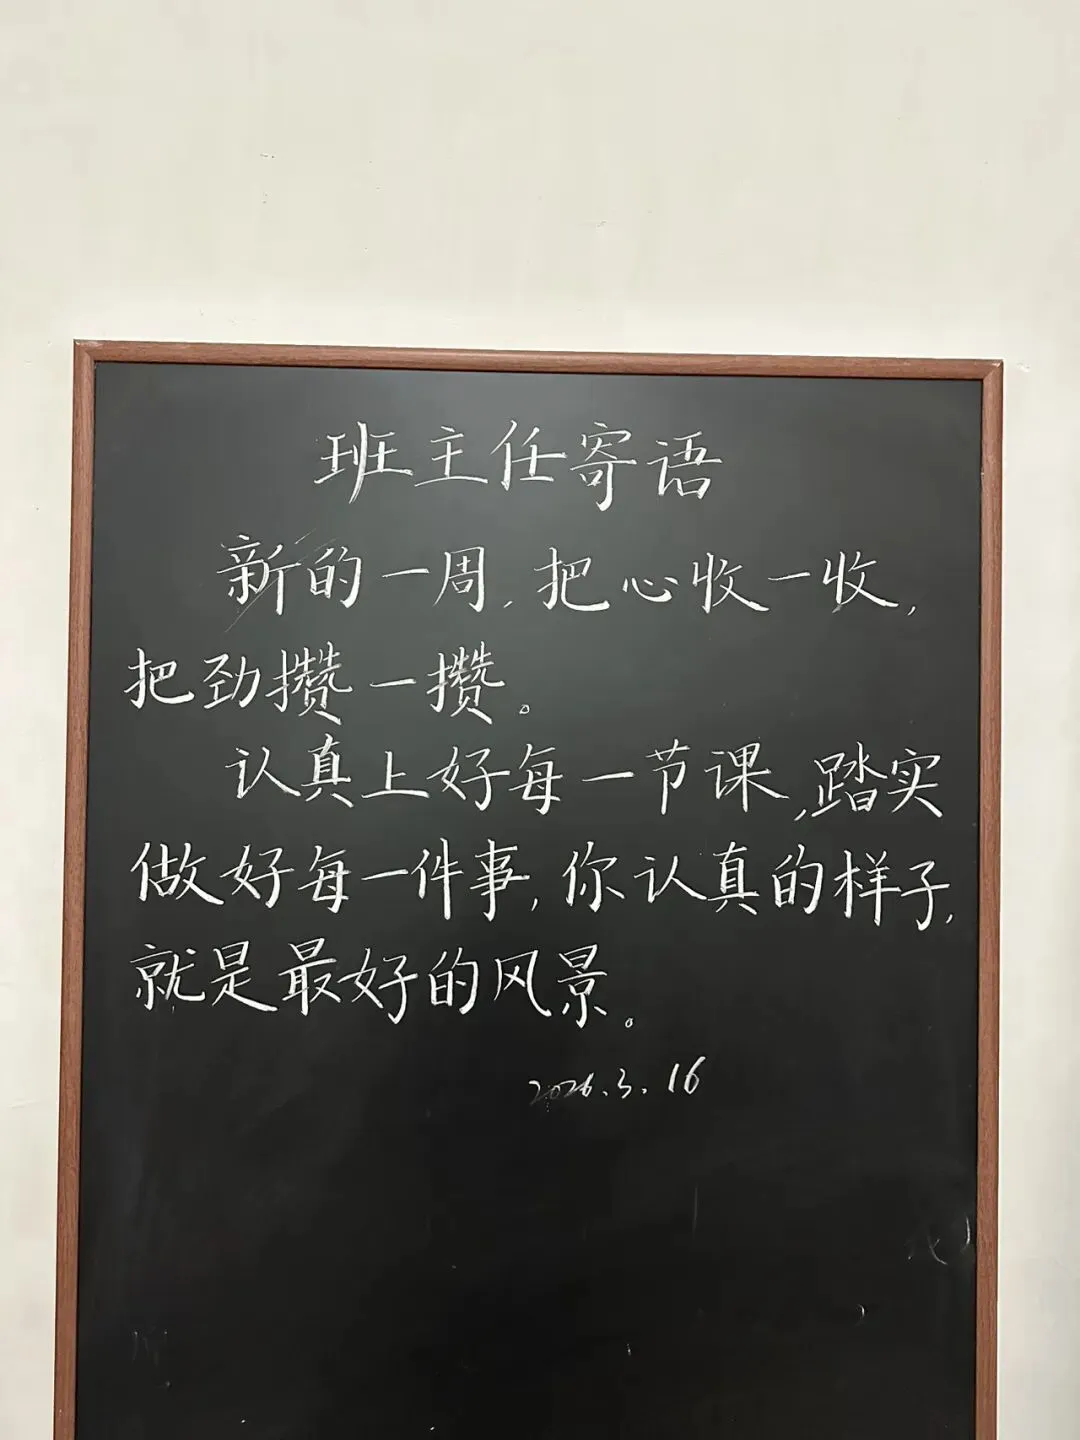 班主任寄语
新的一周,把心收一收,
把劲攒一攒。
认真上好每一节课,踏实
做好每一件事,你认真的样子,
就是最好的风景。
2026.3.16